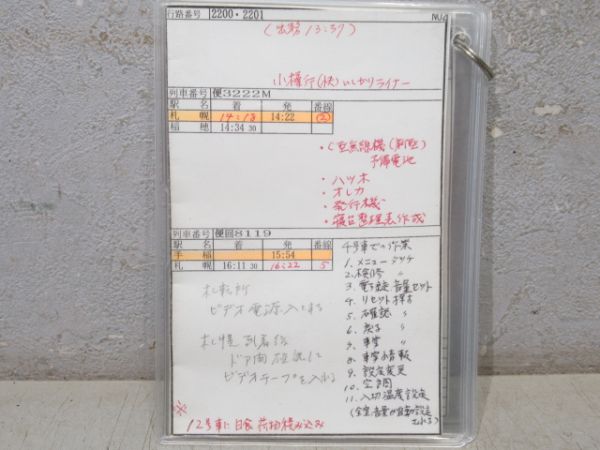 行路番号 2200・2201 NO2
(出勤 13:37)
小樽行(快)いしかりライナー
列車番号 便3222M
駅 名 着 発 番線
札 幌 14:18 14:22 ②
稲 穂 14:34 30
予備電池
・ハッ木
・オレカ
・発行機
・寝台整理表作成
列車番号 便回8119
駅 名 着 発 番線
手 稲 15:54
札 幌 16:11 30 16:22 5
4号車での作業
1. メニュー タッチ
2. 検修 〃
3. 電子錠 音量セット
4. リセット押す
5. 確認 〃
6. 戻る 〃
7. 車掌 〃
8. 車掌情報
9. 設定変更
10. 空調
11. 入切温度設定
(全室音量が自動設定
される)
札転所
ビデオ電源入れる
札幌到着後
ドア開確認して
ビデオテープを入れる
※
12号車に日食荷物積み込み